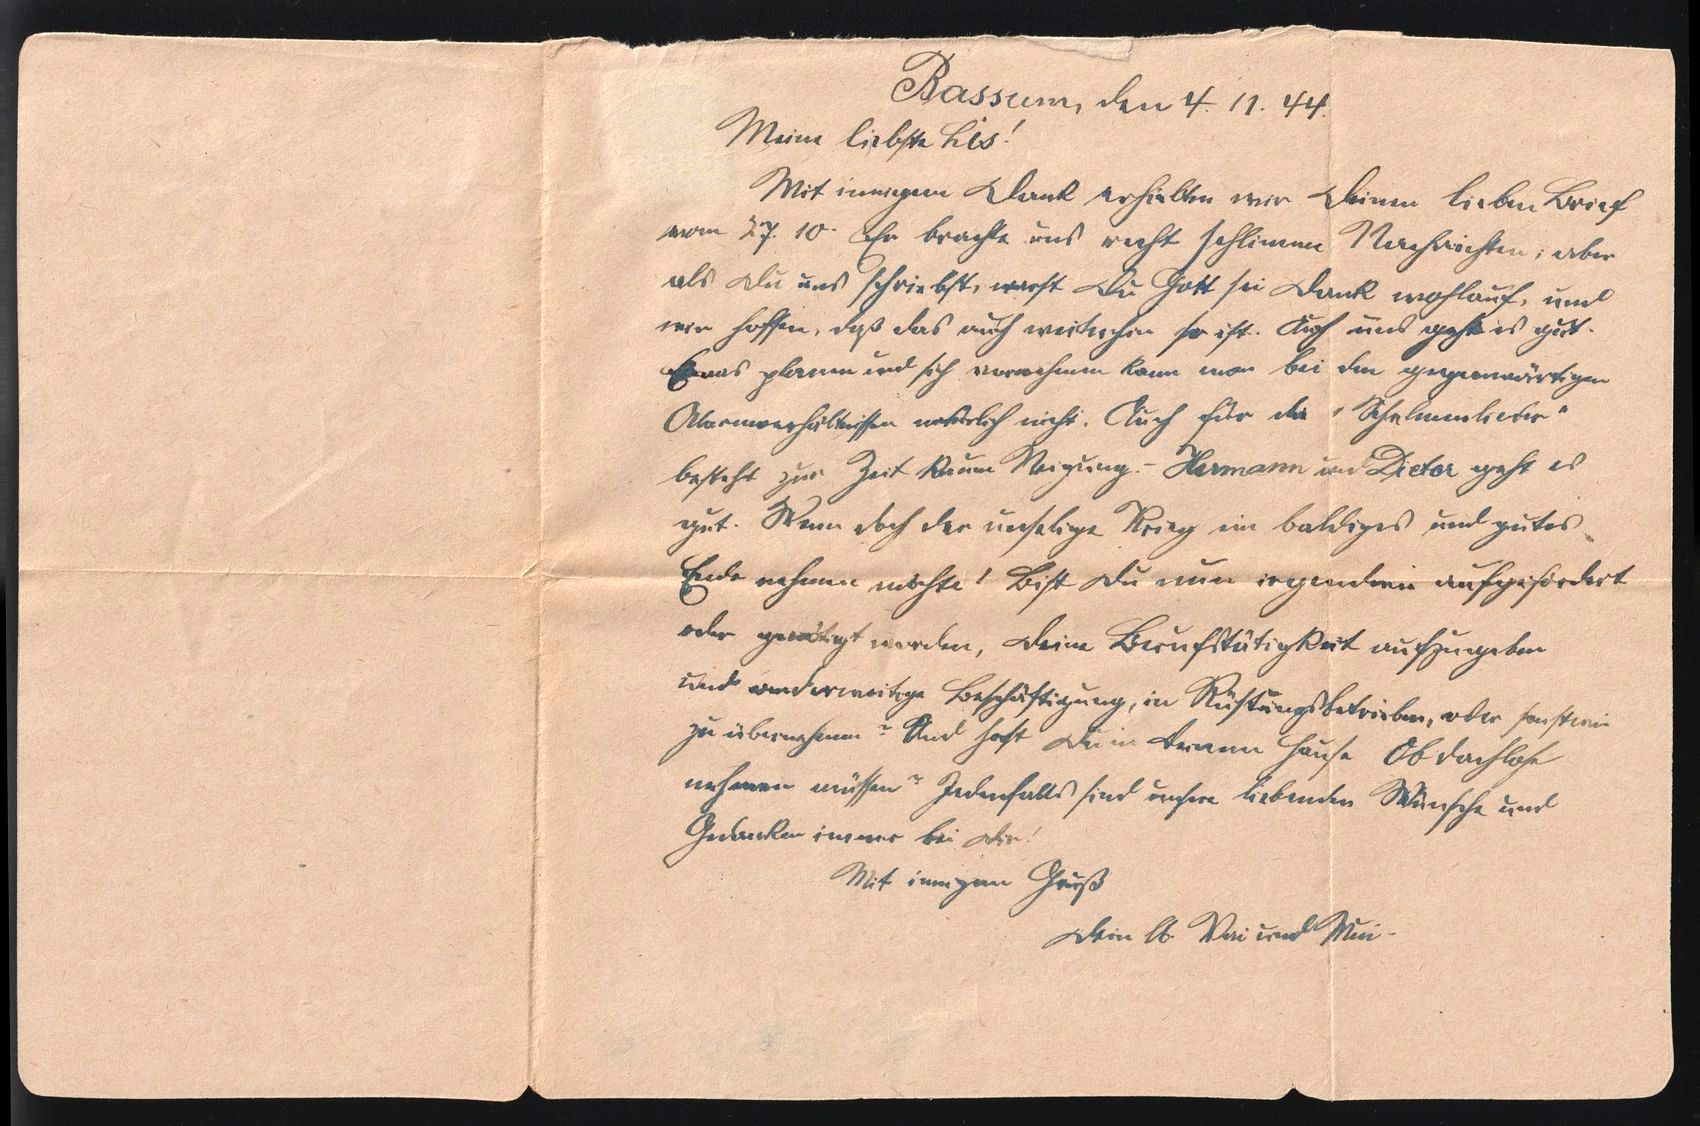 Bassum, den 4. 11. 44.
Meine liebste Lis!
Mit innigem Dank erhielten wir Deinen lieben Brief
vom 27. 10. Er brachte uns recht schlimme Nachrichten; aber
als Du uns schriebst, warst Du Gott sei Dank wohlauf, und
wir hoffen, daß das auch weiterhin so ist. Auch uns geht es gut.
Etwas planen und sich vornehmen kann man bei den gegenwärtigen
Alarmverhältnissen natürlich nicht. Auch für die "Schelmenlieder"
besteht zur Zeit kaum Neigung. - Hermann und Dieter geht es
gut. Wenn doch der unselige Krieg ein baldiges und gutes
Ende nehmen möchte! Bist Du nun irgendwie aufgefordert
oder genötigt worden, Deine Berufstätigkeit aufzugeben
und anderweitige Beschäftigung, in Rüstungsbetrieben, oder sonstwie
zu übernehmen? Und hast Du in Hause Obdachlose
nehmen müssen? Jedenfalls sind unsere liebenden Wünsche und
Gedanken immer bei Dir!
Mit innigem Gruß
Dein und